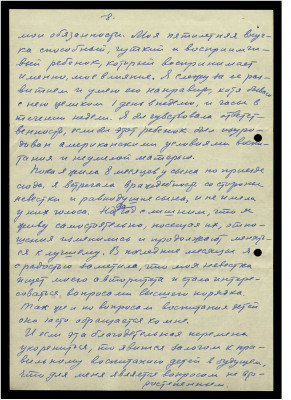 -8.
мои обязанности. Моя пятилетняя внуч-
ка способный, чуткий и восприимчи-
вый ребенок, который воспринимает
именно, мое влияние. Я слежу за ее раз-
витием и умею его направить, хотя бываю
с нею целиком 1 день в неделю, и часы в
течении недели. Я бы чувствовала ответст-
венность, если бы этот ребенок был изуро-
дован американскими условиями воспи-
тания и неумелой матерью.
Пока я жила 8 месяцев у сына по приезде
сюда, я встречала враждебность со стороны
невестки и равнодушие сына, и не имела
у них голоса. Но год с лишним, что я
живу самостоятельно, посещая их, отно-
шения изменились и продолжают менять-
ся к лучшему. В последние месяцы я
с радостью заметила, что моя невестка
ищет моего авторитета и стала интере-
соваться вопросами высшего порядка.
Так же и по вопросам воспитания детей
она часто обращается ко мне.
И если эта благодетельная перемена
укоренится, то явится залогом к пра-
вильному воспитанию детей в будущем,
что для меня является вопросом не вто-
ростепенным.